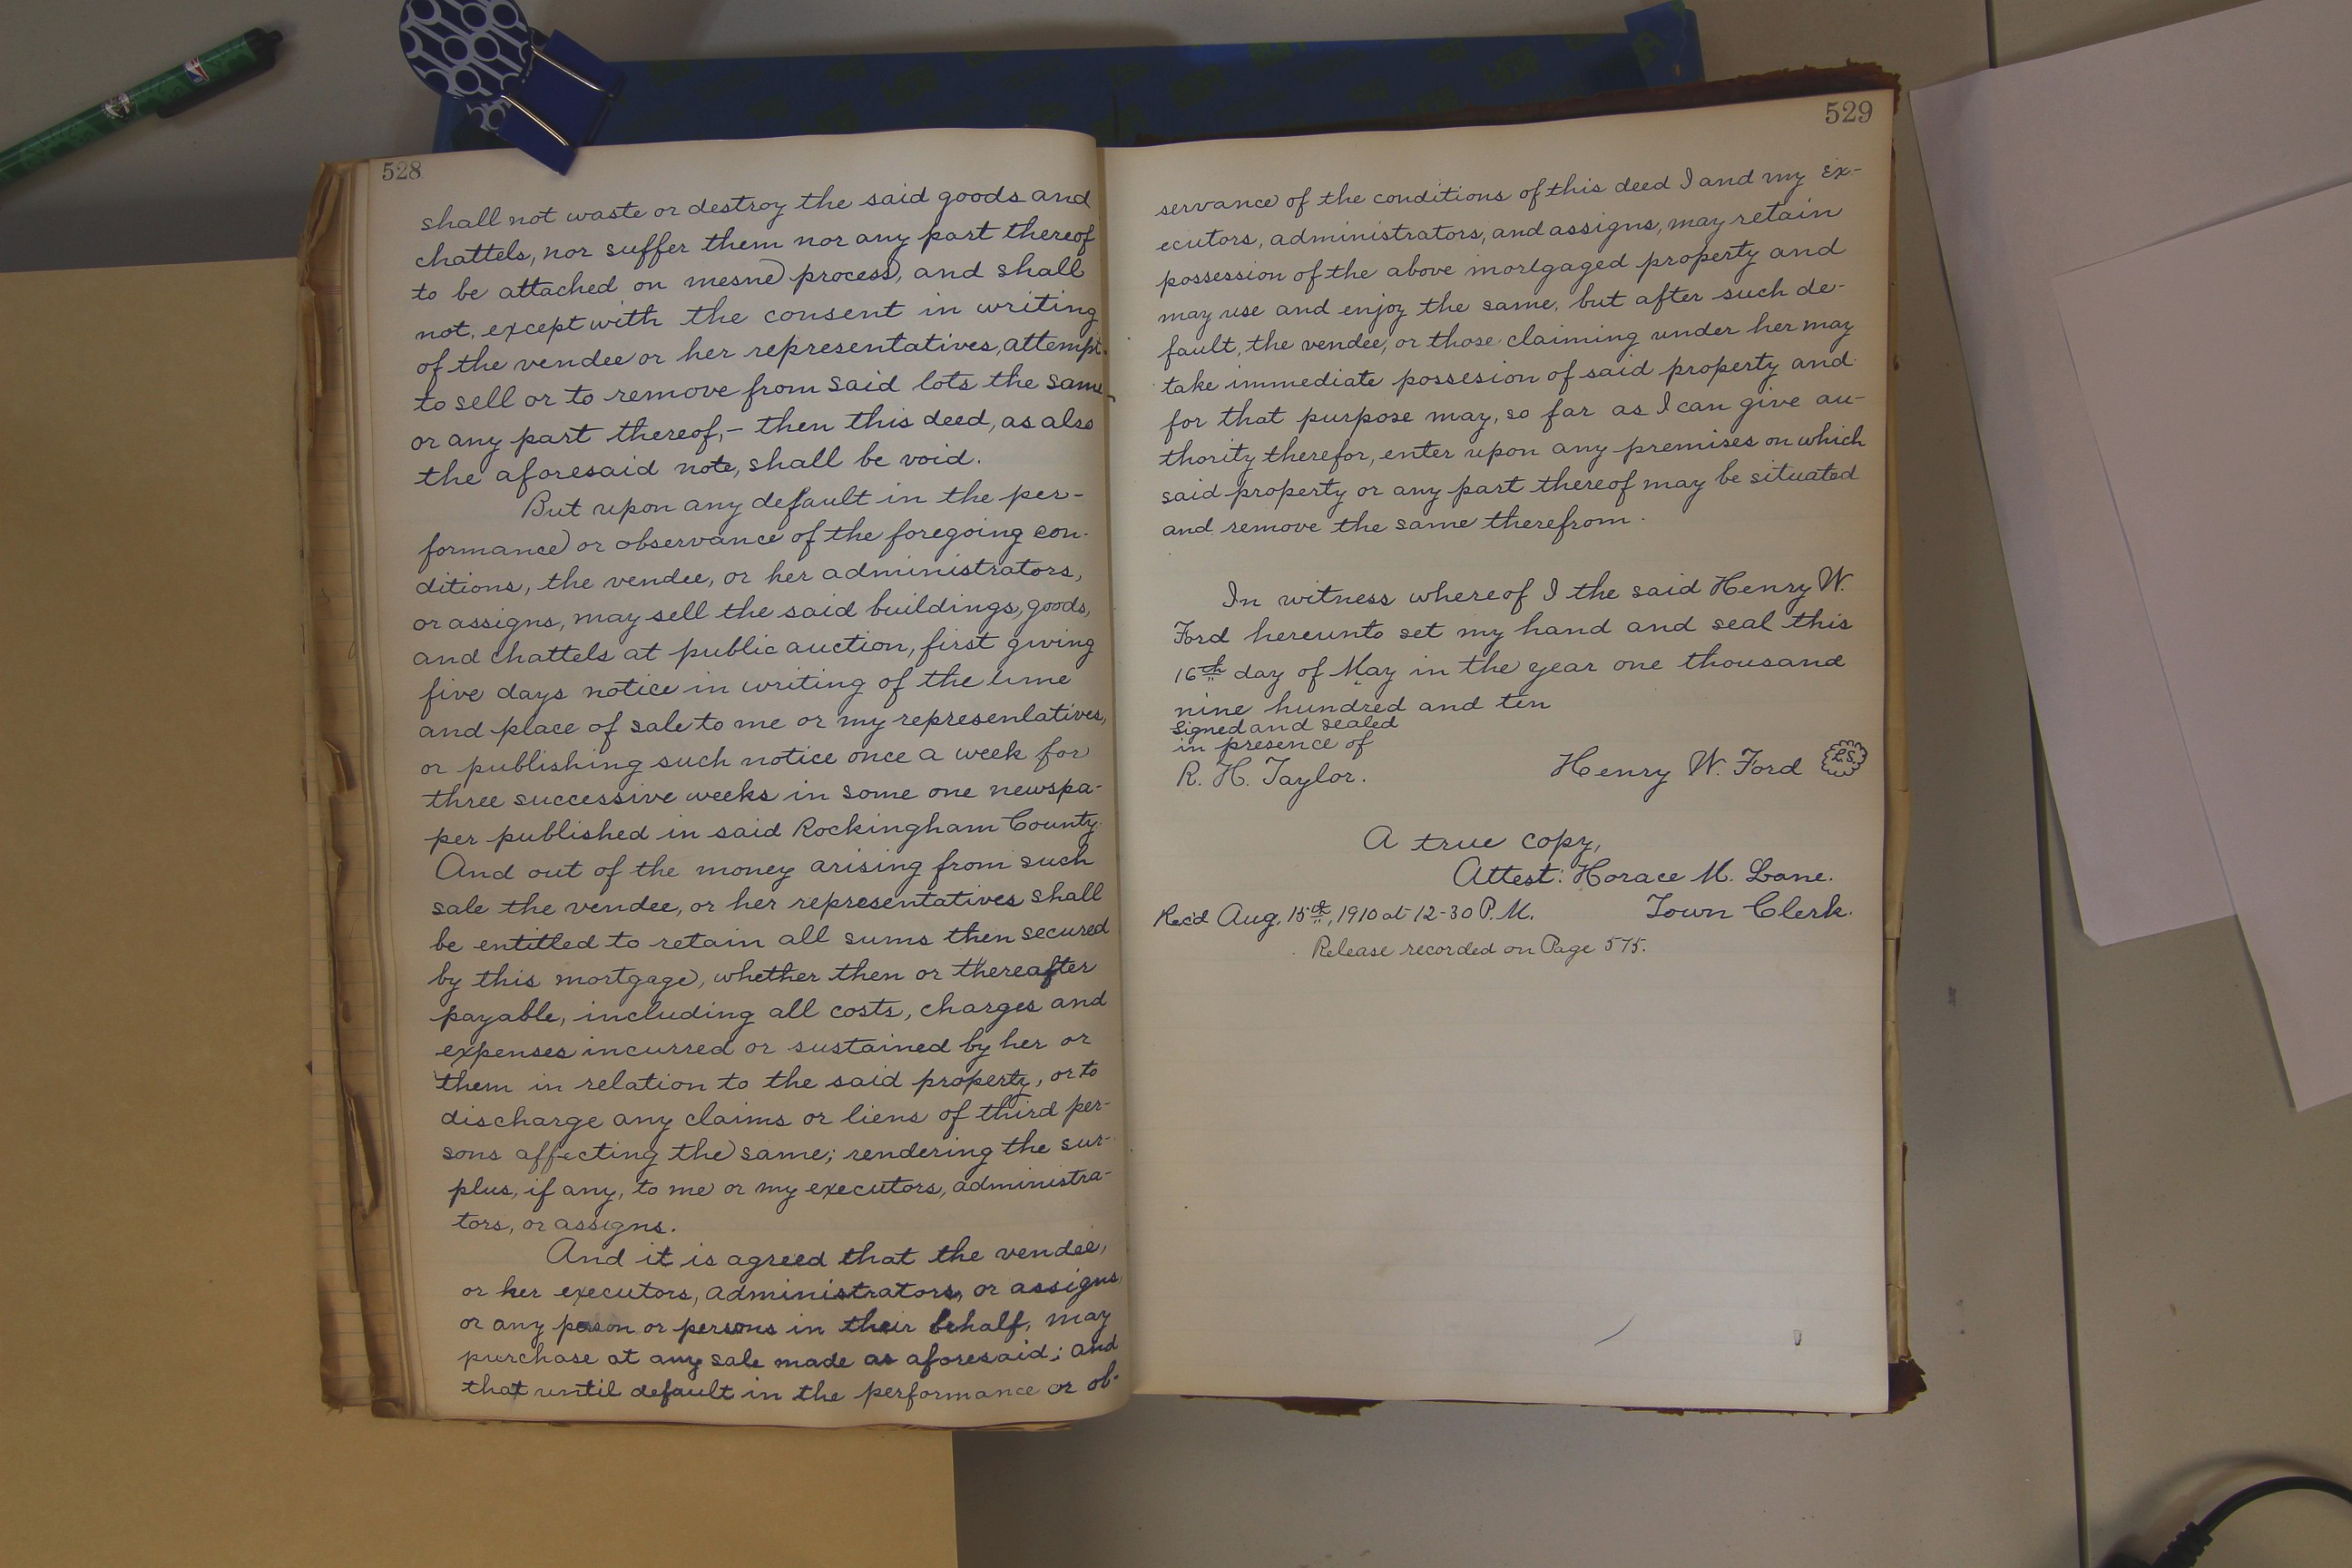 528
shall not waste or destroy the said goods and
chattels, nor suffer them nor any part thereof
to be attached on mesne process, and shall
not, except with the consent in writing
of the vendee or her representatives, attempt
to sell or to remove from said lots the same
or any part thereof,- then this deed, as also
the aforesaid note, shall be void.
But upon any default in the per-
formance or observance of the foregoing con-
ditions, the vendee, or her administrators,
or assigns, may sell the said buildings, goods,
and chattels at public auction, first giving
five days notice in writing of the time
and place of sale to me or my representatives,
or publishing such notice once a week for
three successive weeks in some one newspa-
per published in said Rockingham County.
And out of the money arising from such
sale the vendee, or her representatives shall
be entitled to retain all sums then secured
by this mortgage, whether then or thereafter
payable, including all costs, charges and
expenses incurred or sustained by her or
them in relation to the said property, or to
discharge any claims or liens of third per-
sons affecting the same; rendering the sur-
plus, if any, to me or my executors, administra-
tors, or assigns.
And it is agreed that the vendee,
or her executors, administrators, or assigns,
or any person or persons in their behalf, may
purchase at any sale made as aforesaid; and
that until default in the performance or ob-
529
servance of the conditions of this deed I and my ex-
ecutors, administrators, and assigns, may retain
possession of the above mortgaged property and
may use and enjoy the same, but after such de-
fault, the vendee, or those claiming under her may
take immediate possesion of said property and
for that purpose may, so far as I can give au-
thority therefor, enter upon any premises on which
said property or any part thereof may be situated
and remove the same therefrom.
In witness whereof I the said Henry W.
Ford hereunto set my hand and seal this
16th day of May in the year one thousand
nine hundred and ten
Signed and sealed
in presence of
R. H. Taylor.
Henry W. Ford L.S.
A true copy,
Attest: Horace M. Lane.
Rec'd Aug. 15th, 1910 at 12-30 P.M. Town Clerk.
Release recorded on Page 575.